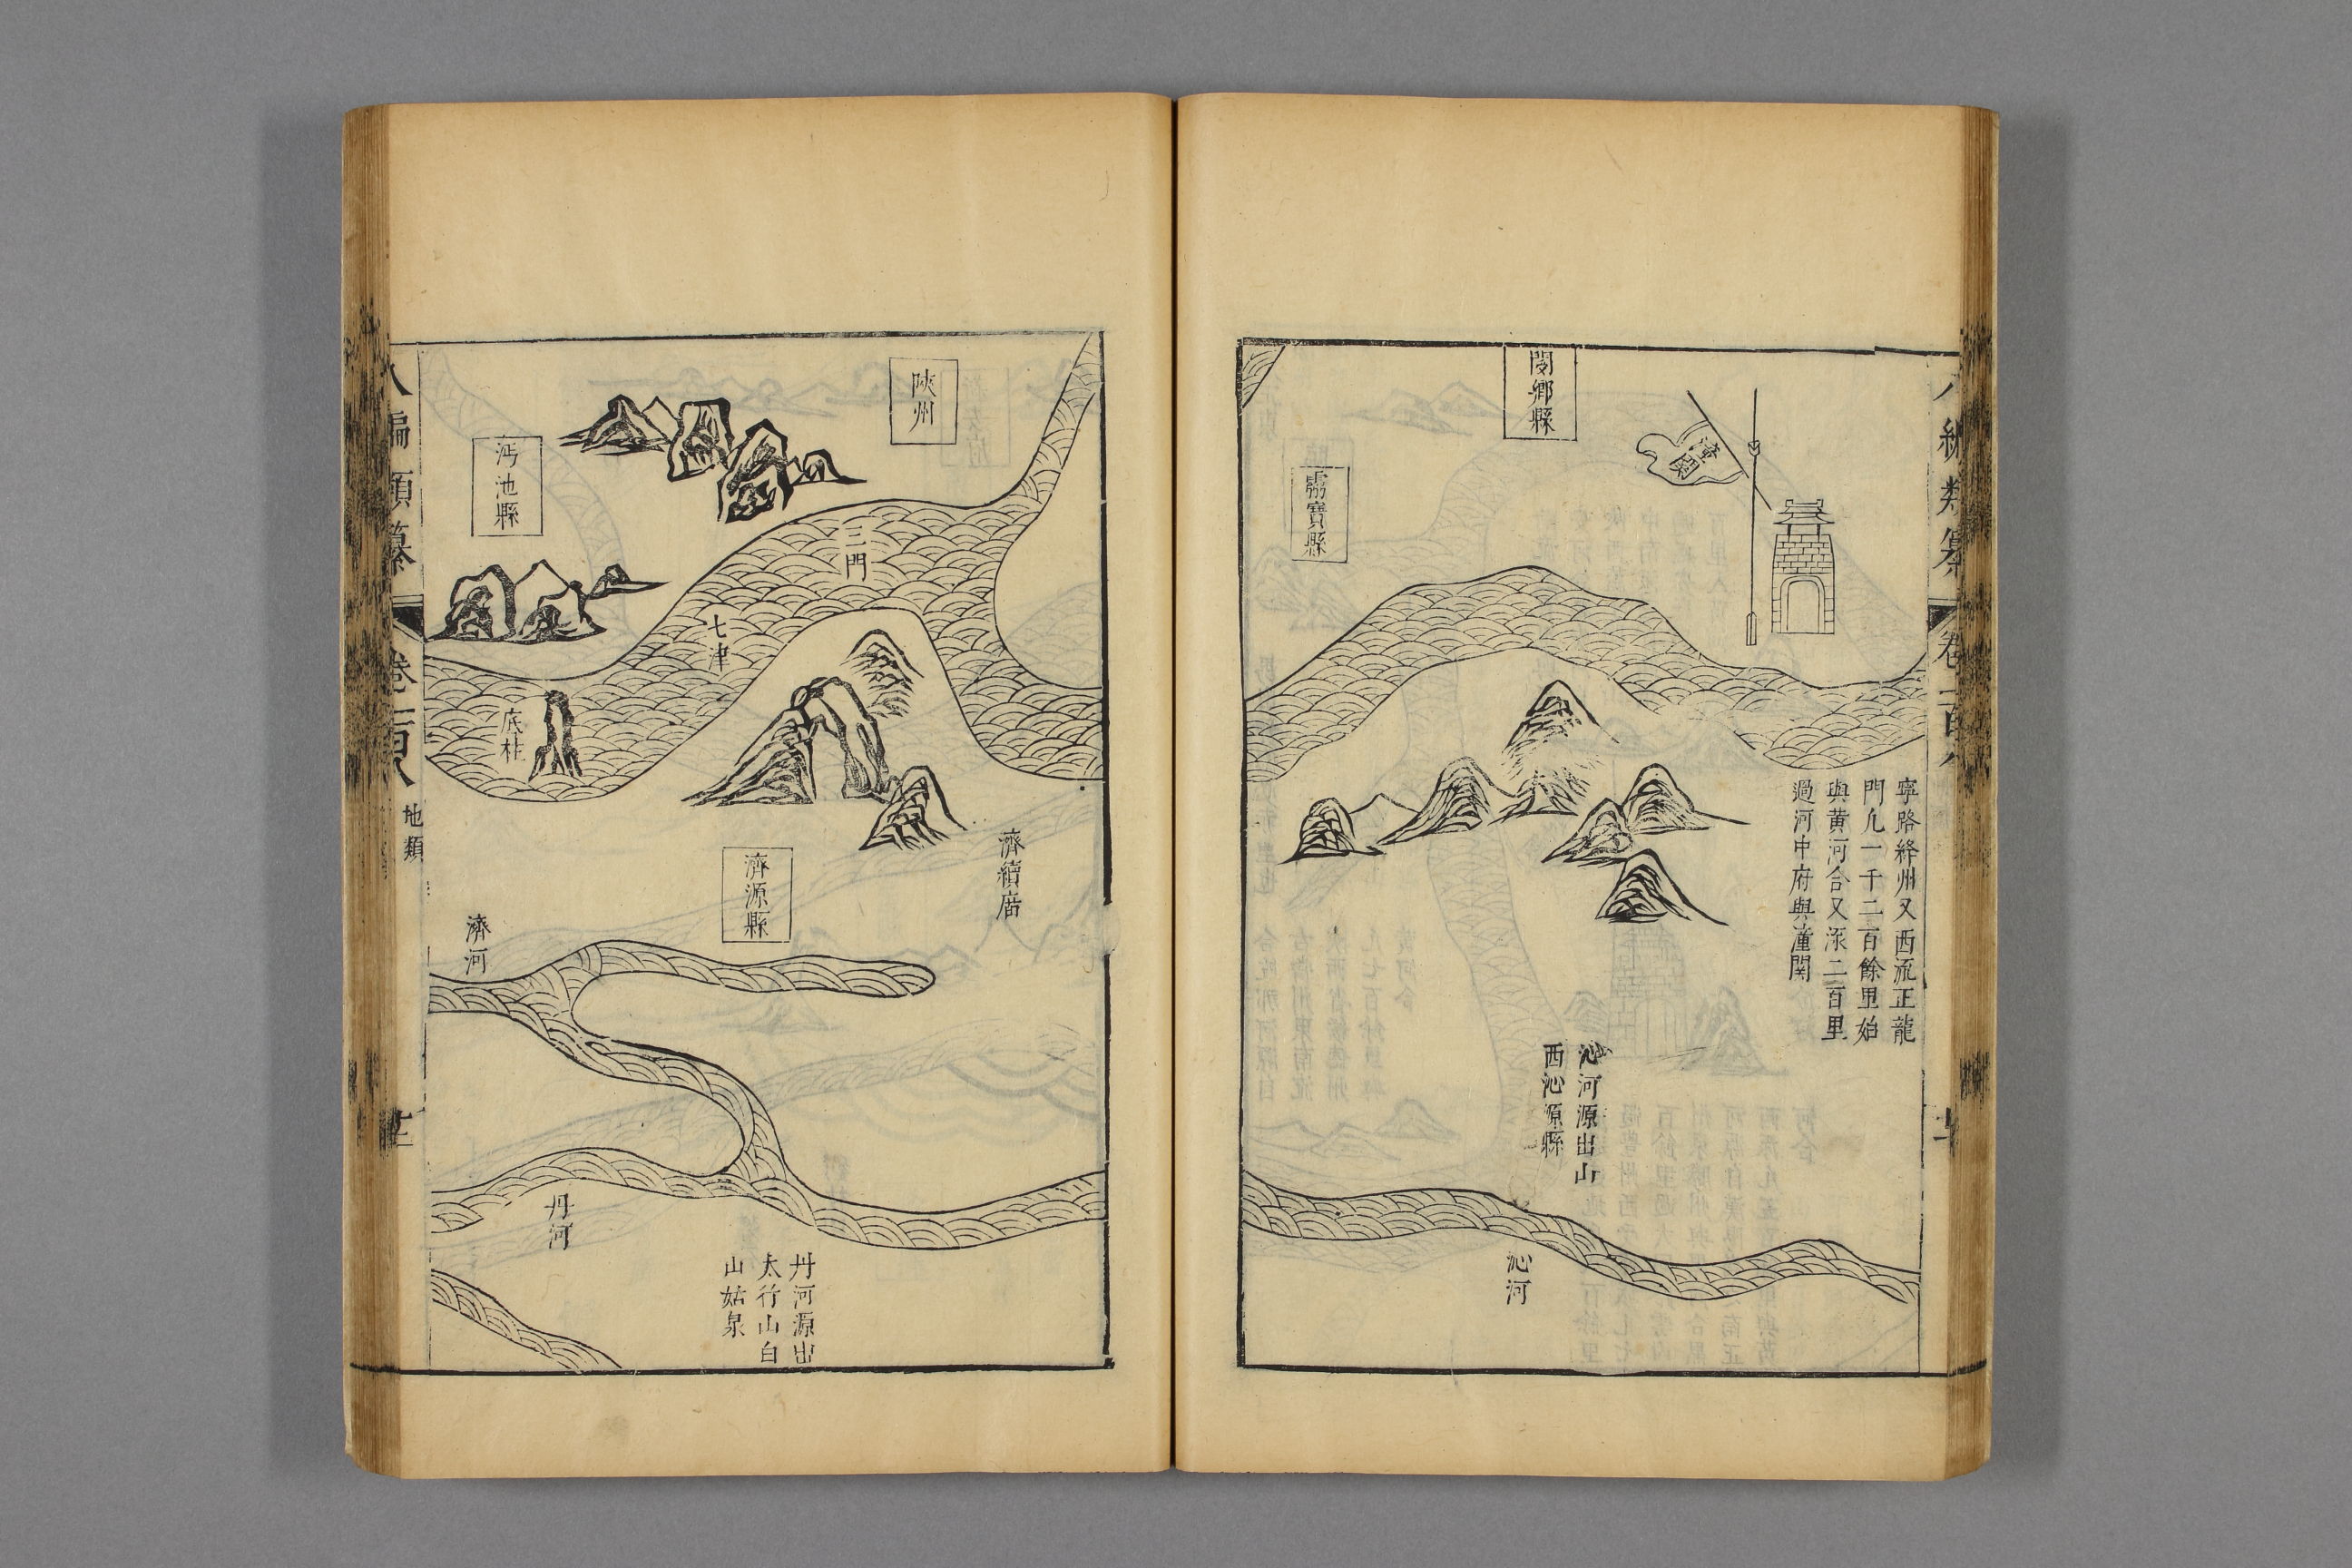 潼関
寧路絳州又西流正龍
門凢一千二百餘里始
與黄河合又㴑二百里
過河中府與潼関
閿鄉縣
靈寶縣
沁河源出山
西沁源縣
沁河
陜州
三門
七津
沔池縣
底柱
濟瀆庿
濟源縣
濟河
丹河源出
太行山白
山姑泉
丹河
八編類纂
卷一百八
地類